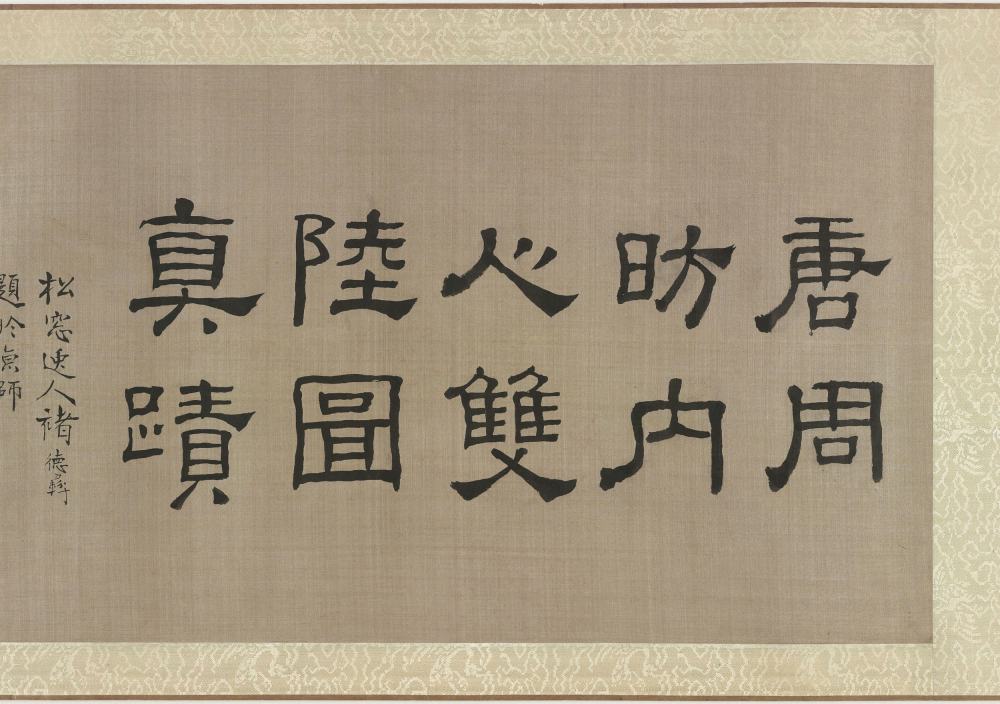 唐周
昉内
人雙
陸圖
真蹟
松窓逸人褚德彝
題於京師